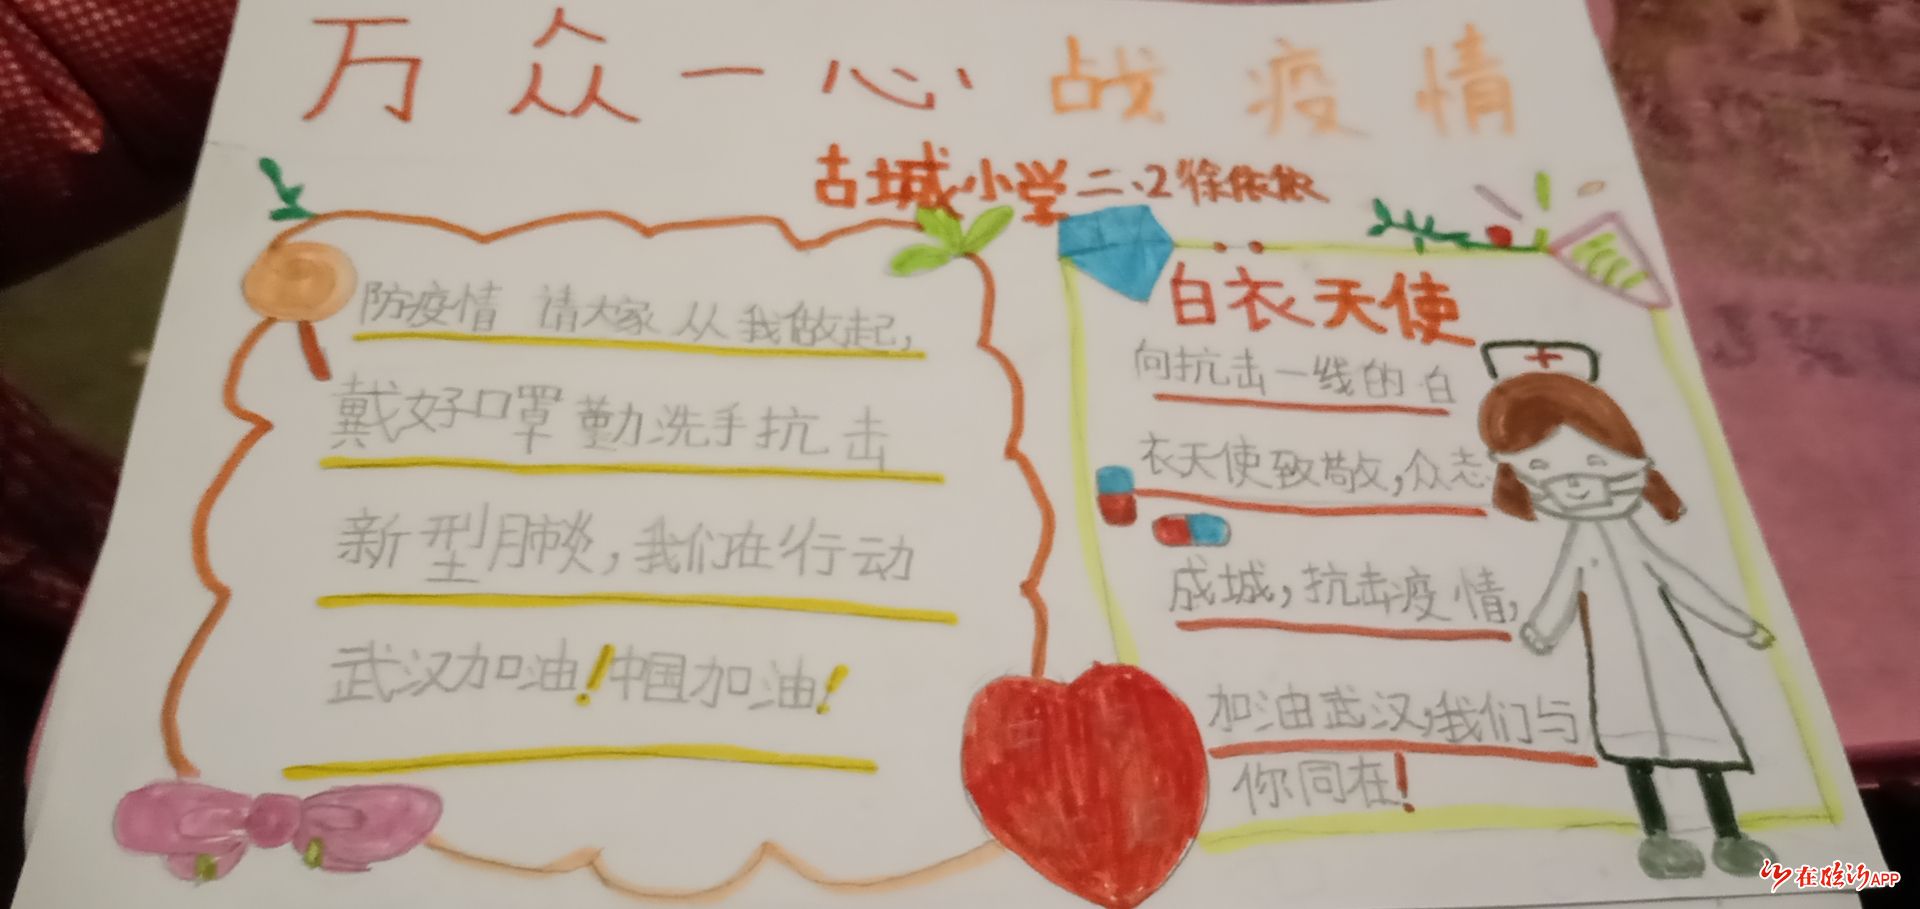 万众一心 战疫情
古城小学二、2徐依依
防疫情 请大家从我做起，
戴好口罩勤洗手抗击
新型肺炎，我们在行动
武汉加油！中国加油！
白衣天使
向抗击一线的白
衣天使致敬，众志
成城，抗击疫情，
加油武汉，我们与
你同在！
在临沂APP